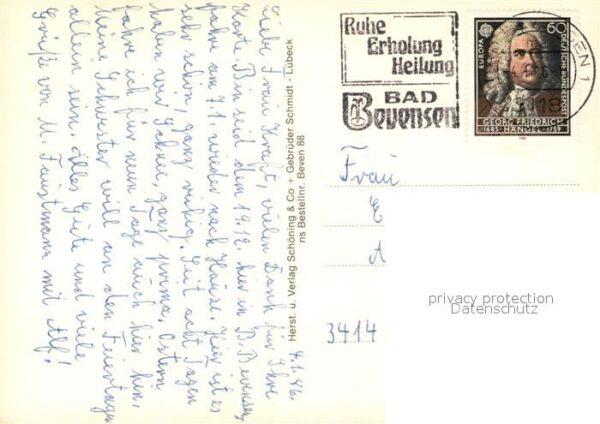 4.1.86.
Liebe Frau Kraft, vielen Dank für Ihre
Karte. Bin seit dem 19.12. hier in B. Bevensen,
fahre am 7.1. wieder nach Hause. Hier ist es
sehr schön, ganz ruhig. Seit acht Tagen
haben wir Schnee, ganz prima. Ostern
fahre ich für neun Tage auch hier hin.
Meine Schwester will an den Feiertagen
allein sein. Alles Gute und viele
Grüße von M. Faustmann mit Alf!
Herst. u. Verlag Schöning & Co + Gebrüder Schmidt - Lübeck
ns Bestellnr. Beven 88
Ruhe
Erholung
Heilung
BAD
Bevensen
EN 1
118
EUROPA
60
DEUTSCHE BUNDESPOST
GEORG FRIEDRICH
1685 HÄNDEL 1759
Frau
E
A
3414
privacy protection
Datenschutz